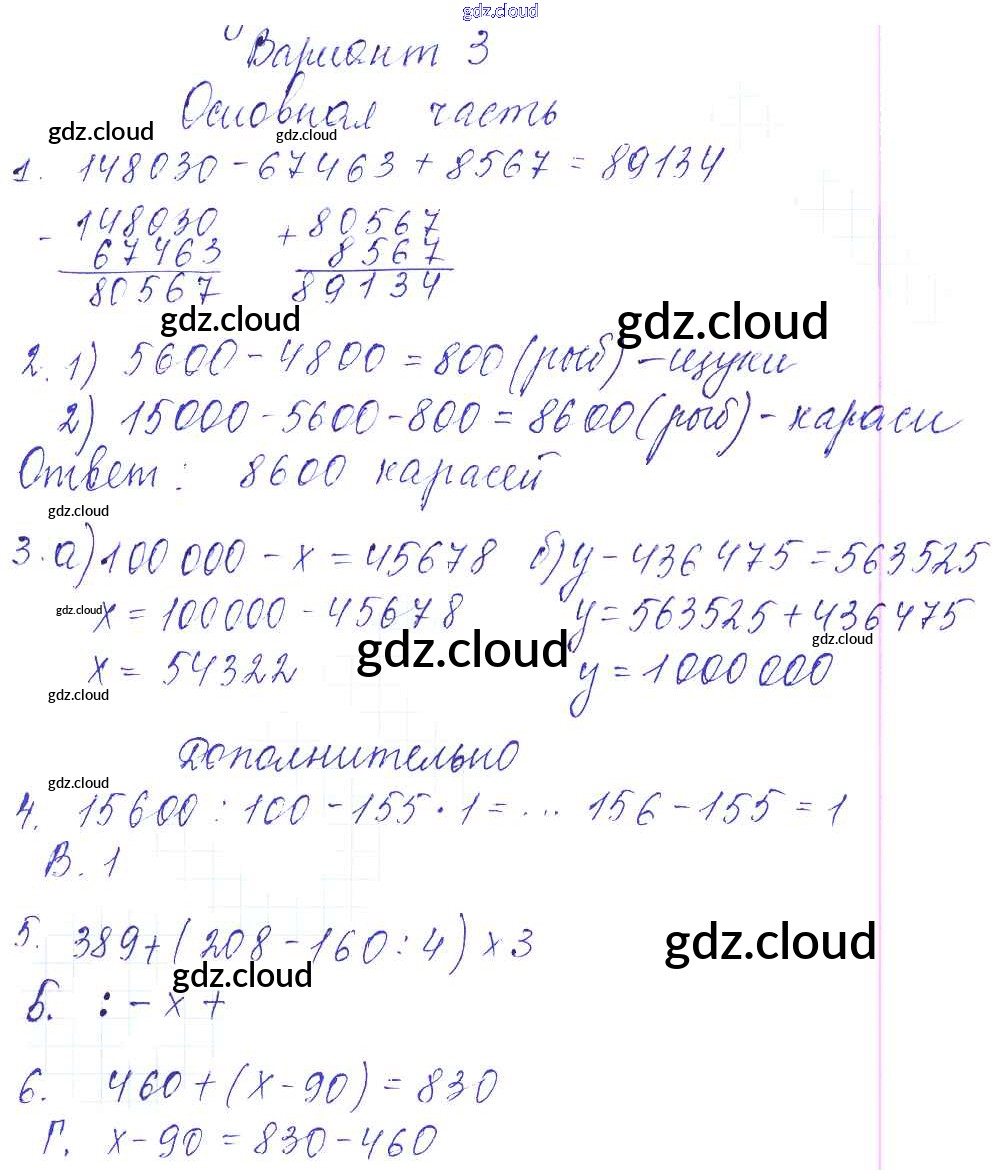 gdz.cloud
Вариант 3
Основная часть
gdz.cloud gdz.cloud
1. 148030 - 67463 + 8567 = 89134
- 148030 + 80567
67463 8567
80567 89134
gdz.cloud gdz.cloud
2. 1) 5600 - 4800 = 800 (рыб) - щуки
2) 15000 - 5600 - 800 = 8600 (рыб) - караси
Ответ: 8600 карасей
gdz.cloud
3. а) 100 000 - x = 45678 б) y - 436 475 = 563525
gdz.cloud x = 100000 - 45678 y = 563525 + 436475
gdz.cloud gdz.cloud
x = 54322 y = 1000 000
gdz.cloud
Дополнительно
gdz.cloud
4. 15600 : 100 - 155 · 1 = ... 156 - 155 = 1
В. 1
5. 389 + (208 - 160 : 4) x 3
gdz.cloud gdz.cloud
Б. : - x +
6. 460 + (x - 90) = 830
Г. x - 90 = 830 - 460